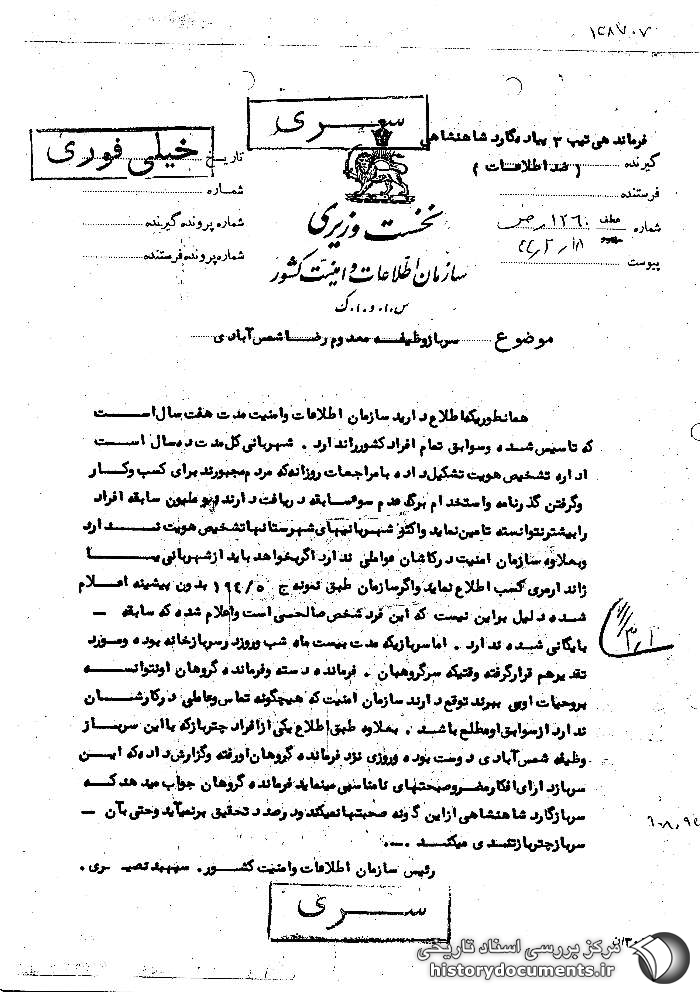 ۱۳۸۷۰۷
سری
خیلی فوری
فرماندهی تیپ ۳ پیاده گارد شاهنشاهی
گیرنده (ضد اطلاعات)
تاریخ
فرستنده
شماره
شماره عطف ۱۲۶۰
شماره پرونده گیرنده
پیوست
شماره پرونده فرستنده
نخست وزیری
سازمان اطلاعات و امنیت کشور
س.ا.و.ا.ک
موضوع سرباز وظیفه معدوم رضا شمس آبادی
همانطوریکه اطلاع دارید سازمان اطلاعات وامنیت مدت هفت سال است
که تاسیس شده وسوابق تمام افراد کشور را ندارد . شهربانی کل مدت ده سال است
اداره تشخیص هویت تشکیل داده با مراجعات روزانه که مردم مجبورند برای کسب وکار
وگرفتن گذرنامه واستخدام برگ عدم سوء سابقه دریافت دارند دو ملیون سابقه افراد
را بیشتر نتوانسته تامین نماید واکثر شهربانیهای شهرستانها تشخیص هویت ندارد
وبعلاوه سازمان امنیت در کاشان عواملی ندارد اگر بخواهد باید از شهربانی یا
ژاندارمری کسب اطلاع نماید واگر سازمان طبق نمونه ج ۱۹۴/۵ بدون پیشینه اعلام
شده دلیل براین نیست که این فرد شخص صالحی است واعلام شده که سابقه –
بایگانی شده ندارد . اما سربازیکه مدت بیست ماه شب وروز در سربازخانه بوده ومورد
تقدیر هم قرار گرفته وقتیکه سرگروهبان . فرمانده دسته وفرمانده گروهان او نتوانسته
بروحیات او پی ببرند توقع دارند سازمان امنیت که هیچگونه تماس وعاملی در کارشان
ندارد از سوابق او مطلع باشد . بعلاوه طبق اطلاع یکی از افراد چترباز که با این سرباز
وظیفه شمس آبادی دوست بوده وروزی نزد فرمانده گروهان او رفته وگزارش داده که این
سرباز دارای افکار مضر وصحبتهای نامناسبی مینماید فرمانده گروهان جواب میدهد که
سرباز گارد شاهنشاهی از این گونه صحبتها نمیکند ودر صدد تحقیق برنمیآید وحتی بآن –
سرباز چترباز تندی میکند ....
رئیس سازمان اطلاعات وامنیت کشور . سپهبد نصیری .
سری
مرکز بررسی اسناد تاریخی
historydocuments.ir